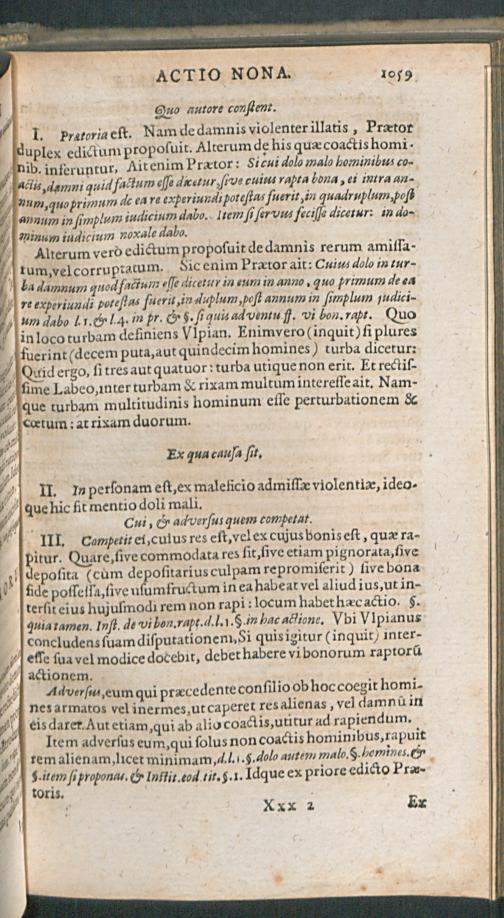 ACTIO NONA. 1059
Quo autore constent.
I. Prætoria est. Nam de damnis violenter illatis, Prætor
duplex edictum proposuit. Alterum de his quæ coactis homi-
nib. inferuntur, Ait enim Prætor: Si cui dolo malo hominibus co-
actis, damni quid factum esse dicetur, sive cuius rapta bona, ei intra an-
num, quo primum de ea re experiundi potestas fuerit, in quadruplum, post
annum in simplum iudicium dabo. Item si servus fecisse dicetur: in do-
minum iudicium noxale dabo.
Alterum verò edictum proposuit de damnis rerum amissa-
rum, vel corruptarum. Sic enim Prætor ait: Cuius dolo in tur-
ba damnum quod factum esse dicetur in eum in anno, quo primum de ea
re experiundi potestas fuerit, in duplum, post annum in simplum judici-
um dabo l. 1. & l. 4. in pr. & §. si quis adventu ff. vi bon. rapt. Quo
in loco turbam definiens Vlpian. Enimvero (inquit) si plures
fuerint (decem puta, aut quindecim homines) turba dicetur:
Quid ergo, si tres aut quatuor: turba utique non erit. Et rectis-
sime Labeo, inter turbam & rixam multum interesse ait. Nam-
que turbam multitudinis hominum esse perturbationem &
cœtum: at rixam duorum.
Ex qua causa sit.
II. In personam est, ex maleficio admissæ violentiæ, ideo-
que hic fit mentio doli mali.
Cui, & adversus quem competat.
III. Competit ei, cuius res est, vel ex cujus bonis est, quæ ra-
pitur. Quare, sive commodata res sit, sive etiam pignorata, sive
deposita (cùm depositarius culpam repromiserit) sive bona
fide possessa, sive usumfructum in ea habeat vel aliud ius, ut in-
tersit eius hujusmodi rem non rapi: locum habet hæc actio. §.
quia tamen. Inst. de vi bon. rapt. d. l. 1. §. in hac actione. Vbi Vlpianus
concludens suam disputationem, Si quis igitur (inquit) inter-
esse sua vel modice docebit, debet habere vi bonorum raptorū
actionem.
Adversus, eum qui præcedente consilio ob hoc coegit homi-
nes armatos vel inermes, ut caperet res alienas, vel damnū in
eis daret. Aut etiam, qui ab alio coactis, utitur ad rapiendum.
Item adversus eum, qui solus non coactis hominibus, rapuit
rem alienam, licet minimam, d. l. 1. §. dolo autem malo. §. homines. &
§. item si proponas. & Instit. eod tit. §. 1. Idque ex priore edicto Præ-
toris.
Xxx 2 Ex